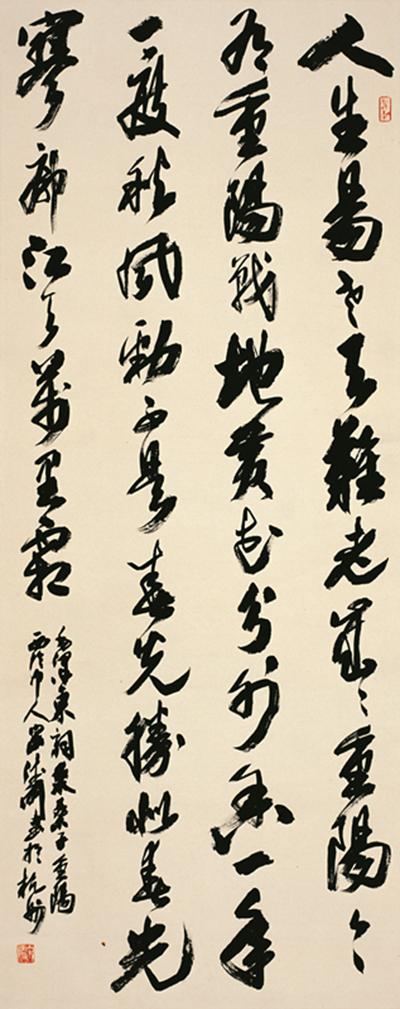 人生易老天難老歲〻重陽今
又重陽戰地黃花分外香一年
一度秋風勁不是春光勝似春光
寥廓江天萬里霜
毛澤東詞采桑子重陽
書於杭州